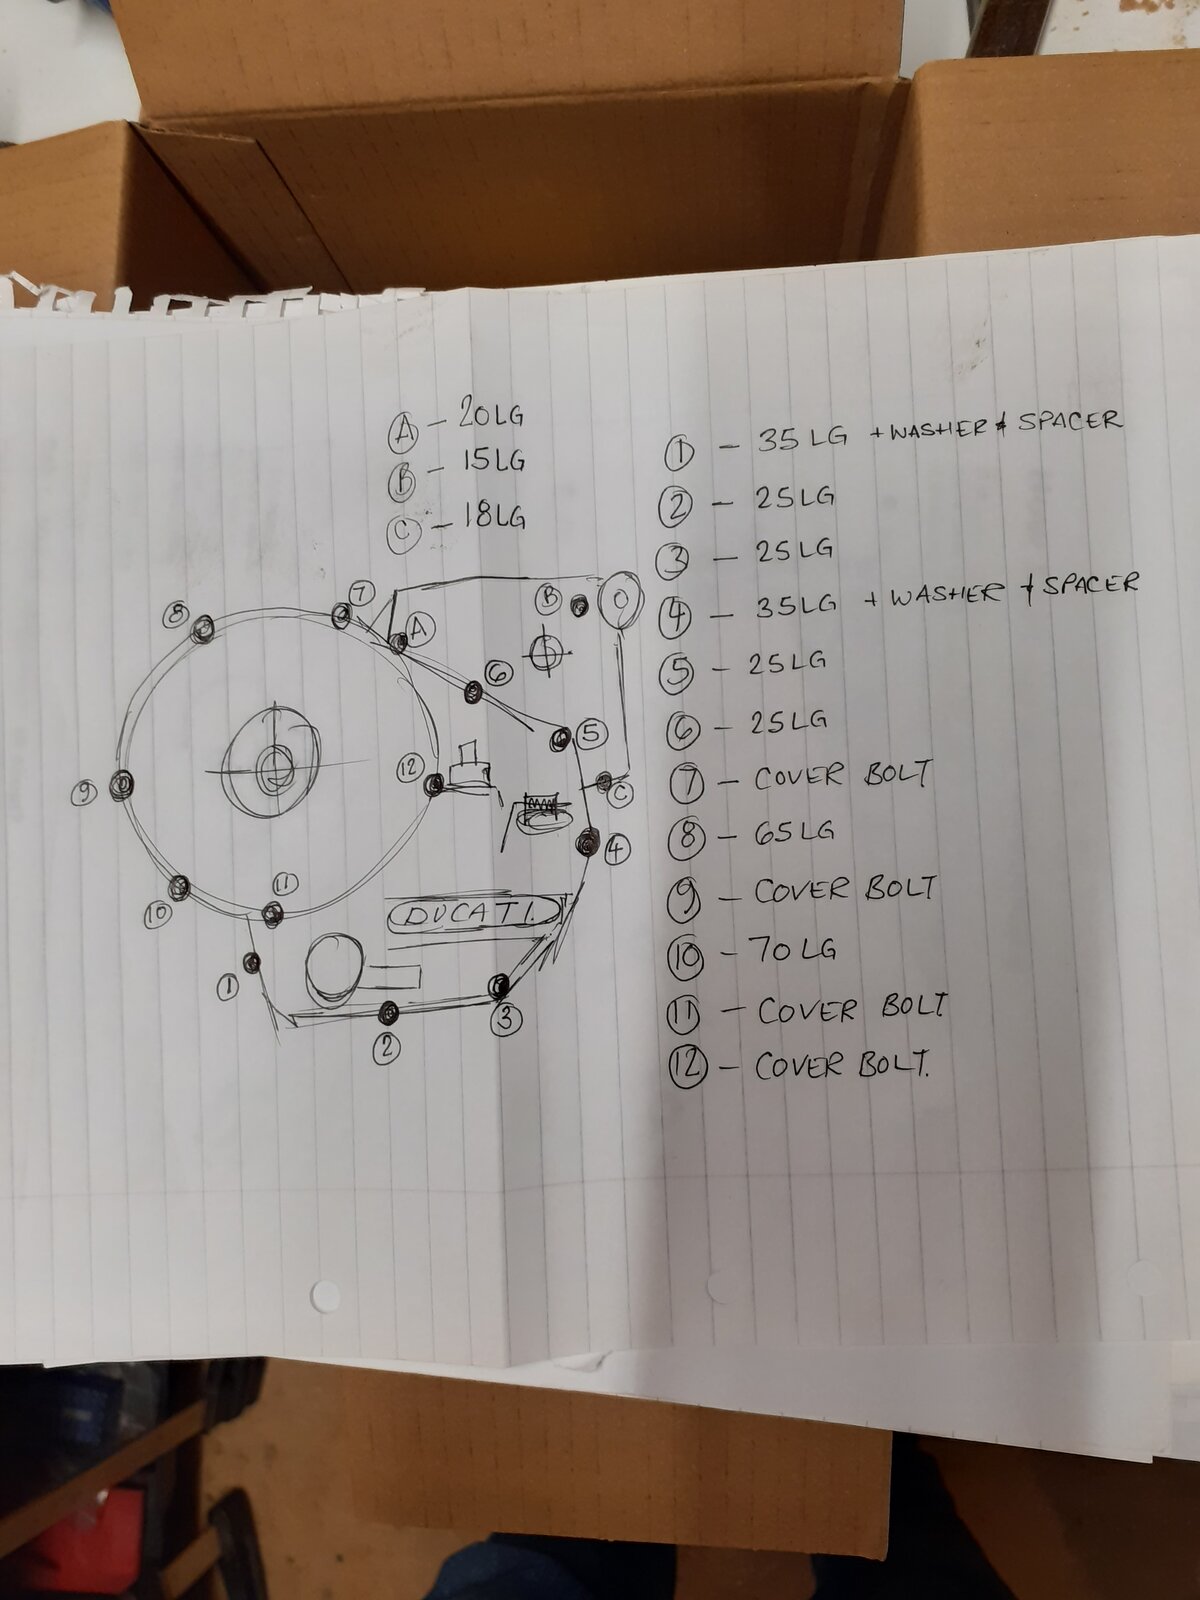 A - 20LG
B - 15LG
C - 18LG
1 - 35LG + WASHER & SPACER
2 - 25LG
3 - 25LG
4 - 35LG + WASHER & SPACER
5 - 25LG
6 - 25LG
7 - COVER BOLT
8 - 65LG
9 - COVER BOLT
10 - 70LG
11 - COVER BOLT
12 - COVER BOLT.
7
B
8
A
6
5
12
9
C
4
11
10
DUCATI
1
3
2